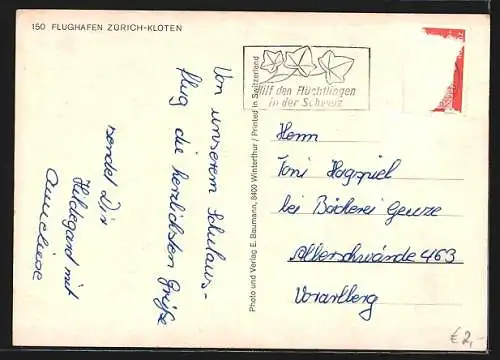 150 FLUGHAFEN ZÜRICH-KLOTEN
Von unserem Schulaus-
flug die herzlichsten Grüße
sendet Dir
Hildegard mit
Anneliese
Photo und Verlag E. Baumann, 8400 Winterthur / Printed in Switzerland
Hilf den Flüchtlingen
in der Schweiz
Herrn
Toni Hagspiel
bei Bäckerei Geuze
Alberschwände 463
Vorarlberg
€ 2,-